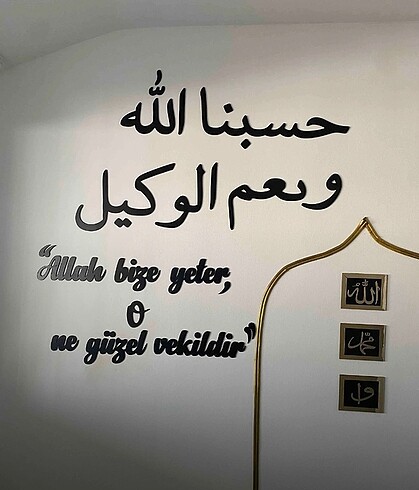 حسبنا الله
ونعم الوكيل
“Allah bize yeter,
O
ne güzel vekildir”
الله
محمد
و